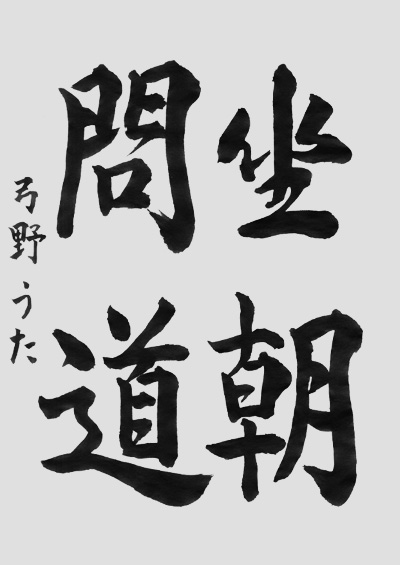 坐朝
問道
弓野うた